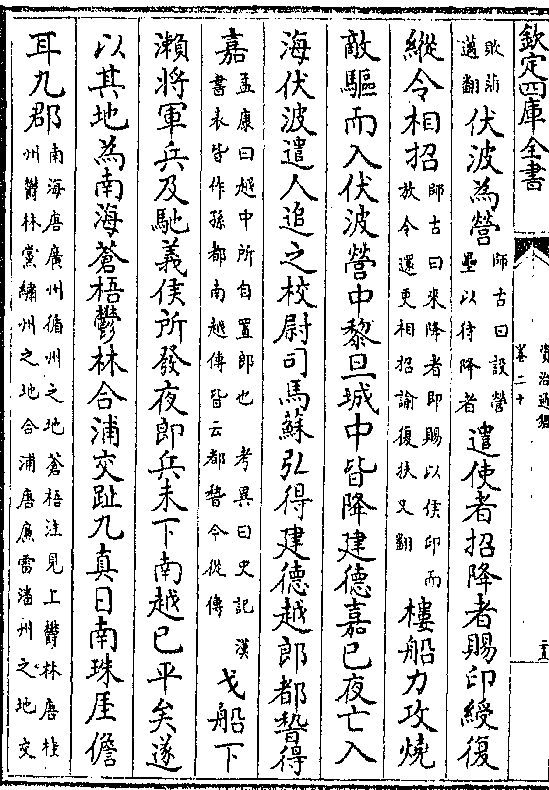 欽定四庫全書
資治通鑑
卷二十
敗沂
邁翻伏波為營師古曰設營
壘以待降者遣使者招降者賜印綬復
縱令相招師古曰來降者即賜以侯印而
放令還更相招諭復扶又翻樓船力攻燒
敵驅而入伏波營中黎旦城中皆降建德嘉已夜亡入
海伏波遣人追之校尉司馬蘇弘得建德越郎都稽得
嘉孟康曰越中所自置郎也考異曰史記漢
書表皆作孫都南越傳皆云都稽今從傳戈船下
瀨將軍兵及馳義侯所發夜郎兵未下南越已平矣遂
以其地為南海蒼梧鬱林合浦交趾九真日南珠厓儋
耳九郡南海唐廣州循州之地蒼梧注見上鬱林唐桂
州鬱林黨繡州之地合浦唐廉雷潘州之地交